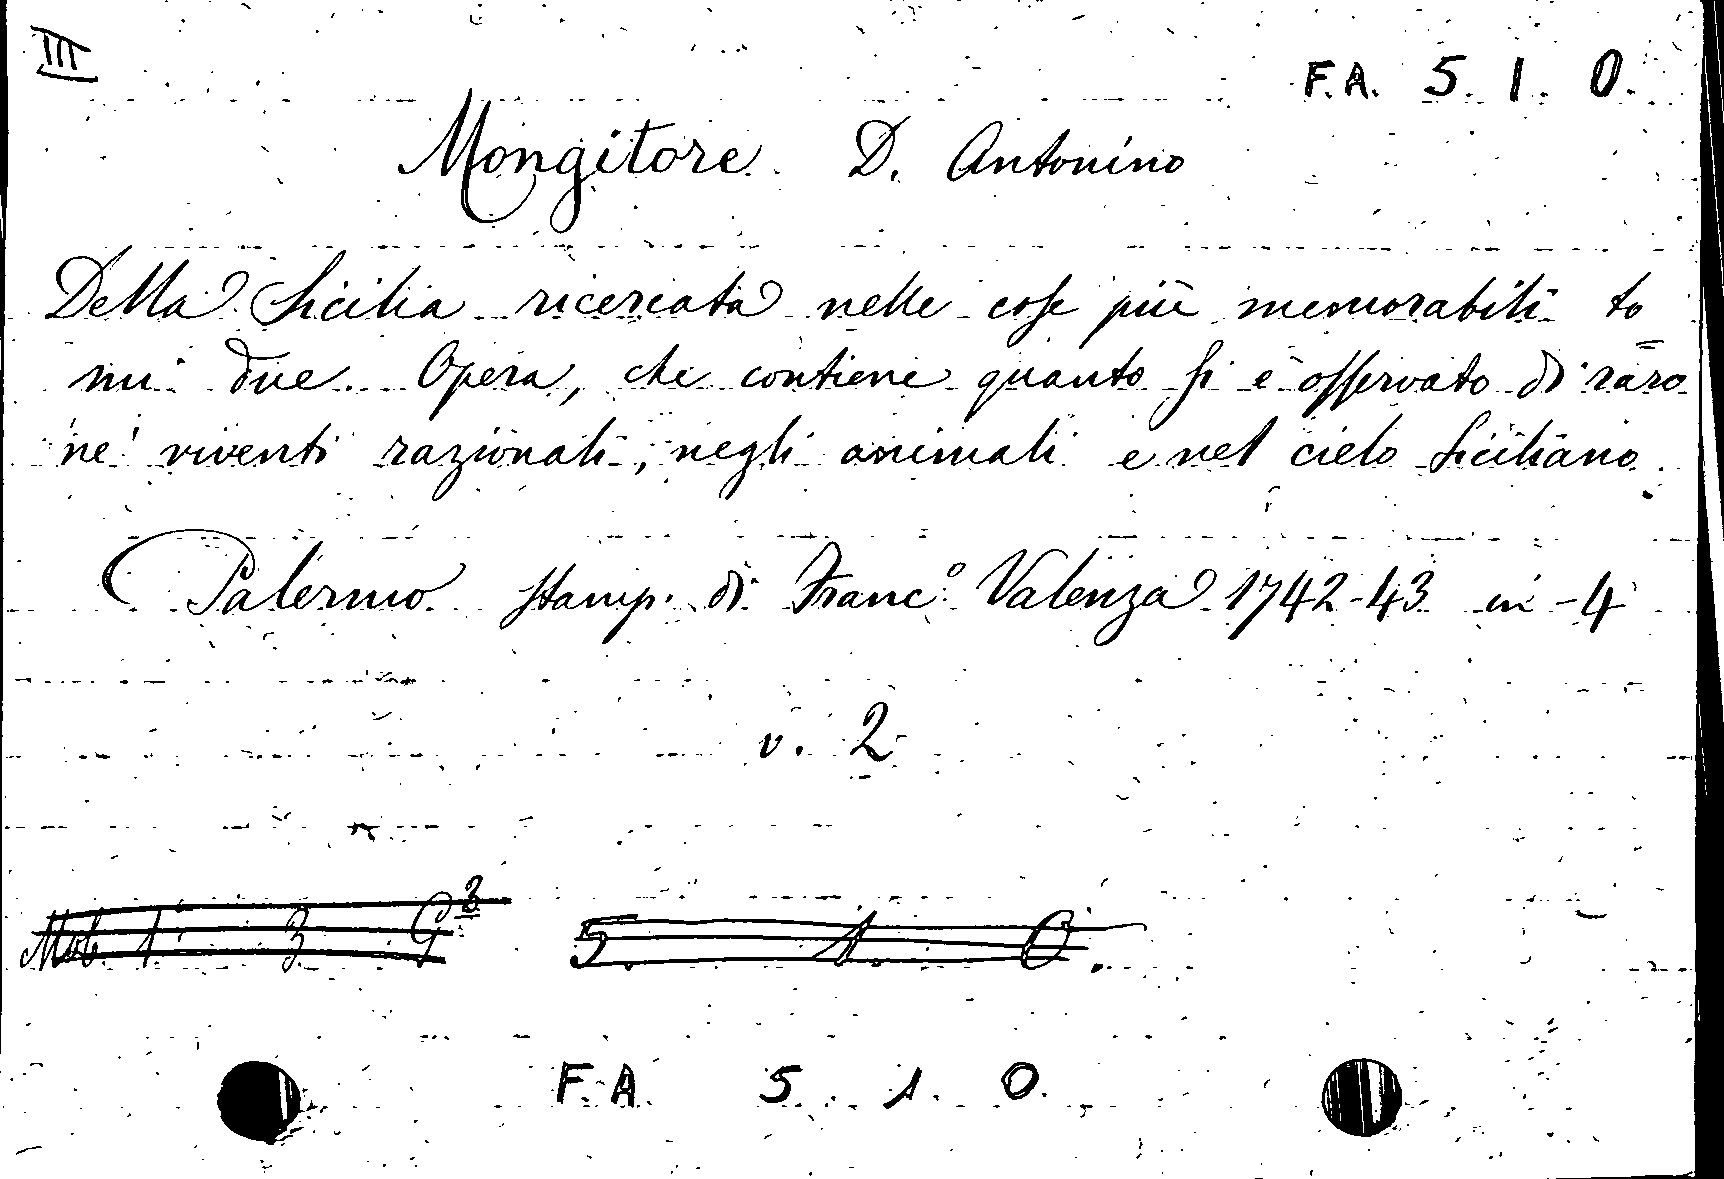 III
F.A. 5. 1. 0.
Mongitore D. Antonino
Della Sicilia ricercata nelle cose più memorabili to
mi due. Opera, che contiene quanto si è osservato di raro
ne' viventi razionali, negli animali e nel cielo Siciliano.
Palermo stamp. di Franc.º Valenza 1742-43 in-4
v. 2
Mob. 1. 3 G 3 5. 1. 0.
F.A. 5. 1. 0.